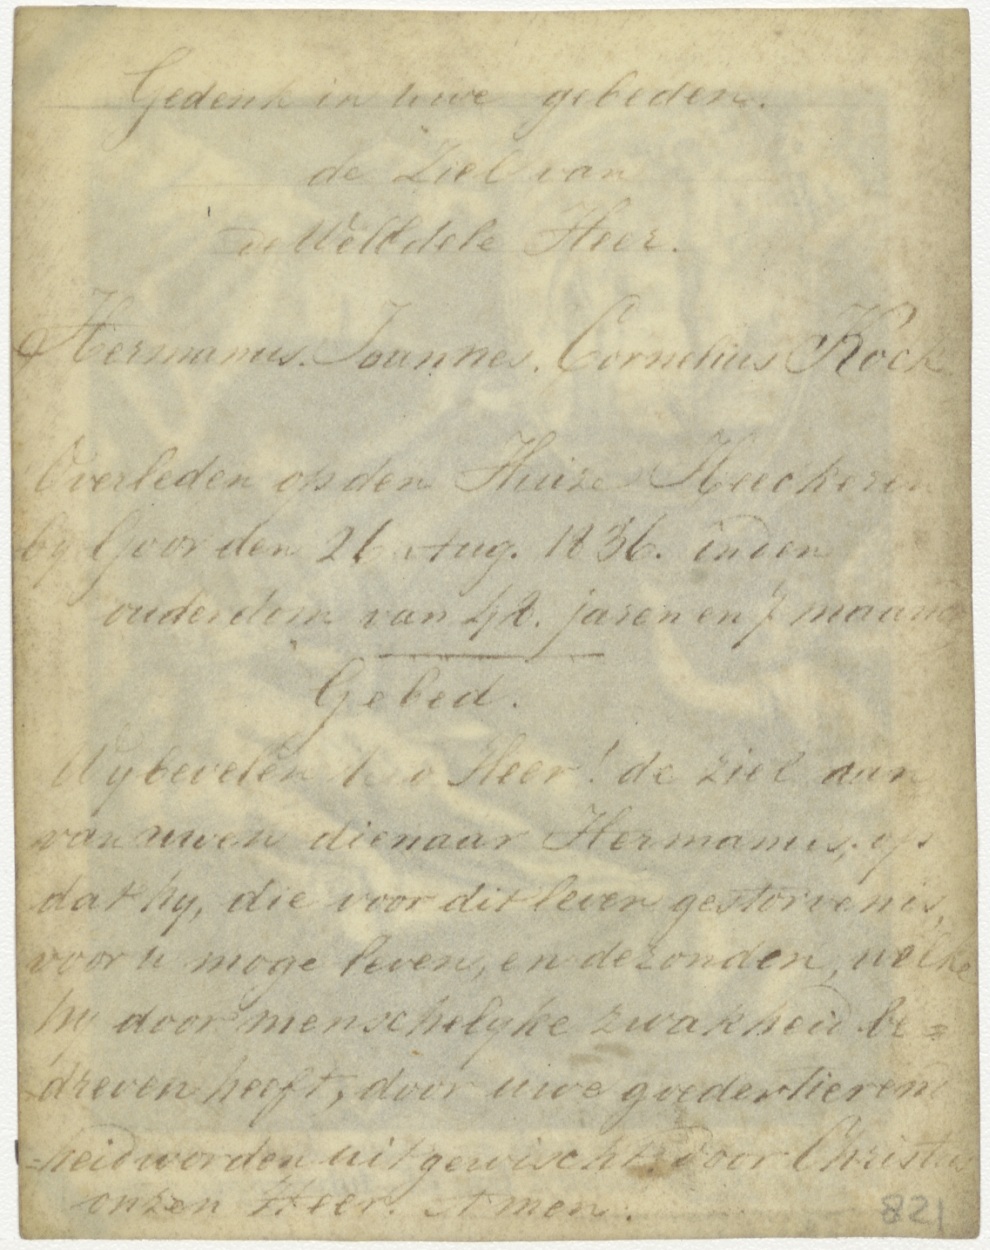 Gedenk in uwe gebeden.
de Ziel van
de WelEdele Heer.
Hermanus. Joannes. Cornelius Kock
Overleden op den Huize Heeckeren
by Goor den 26 Aug. 1836. in den
ouderdom van 42. jaren en 7 maand
Gebed.
Wy bevelen U o Heer! de ziel aan
van uwen dienaar Hermanus, op
dat hy, die voor dit leven gestorven is,
voor U moge leven, en de zonden, welke
hy door menschelyke zwakheid be=
dreven heeft, door uwe goedertieren
=heid worden uitgewischt door Christus
onzen Heer. Amen.
821